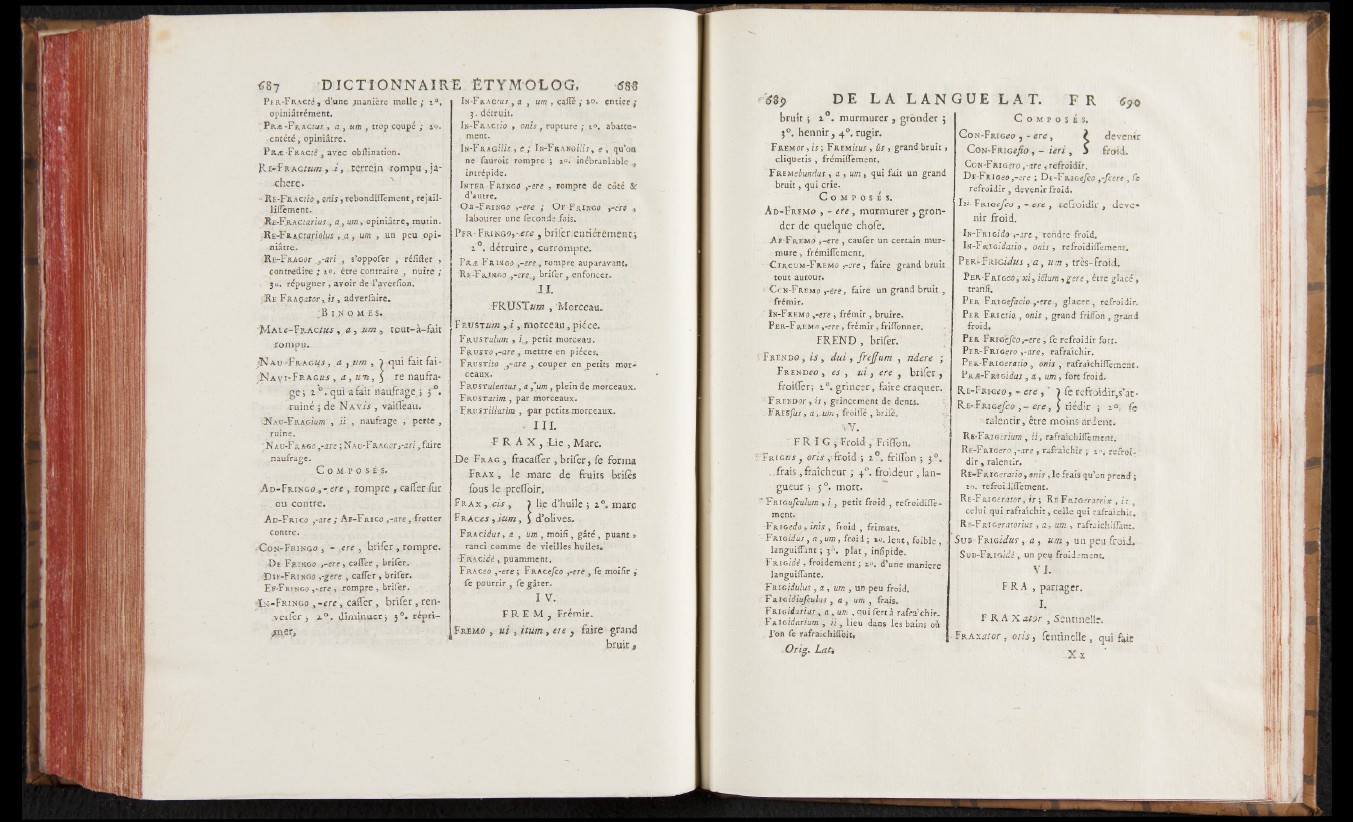 687 DICTIONNAIRE ÉTYMOLOG. 688
PER-FRACTè, d'une manière molle ; 2°.
opiniâtrément.
PRÆ-FRACTUS, a, um, trop coupé ; 2°.
entêté, opiniâtre.
PRÆ-FRACTè, avec obſtination.
RE-FRACTUM, i, terrein rompu, ja-
chere.
RE-FRACTIO, onis, rebondiſſement, rejail-
liſſement.
RE-FRACTARIUS, a, um, opiniâtre, mutin.
RE-FRACTARIOLUS, a, um, un peu opi-
niâtre.
RE-FRAGOR, -ari, s'oppoſer, réſiſter,
contredire ; 2°. être contraire, nuire ;
3°. répugner, avoir de l'averſion.
RE-FRAGATOR, is, adverſaire.
BINOMES.
MALE-FRACTUS, a, um, tout-à-fait
rompu.
NAU-FRAGUS, a, um, } qui fait fai-
NAVI-FRAGUS, a, um, } re naufra-
ge ; 2°. qui a fait naufrage ; 3°.
ruiné ; de NAVIS, vaiſſeau.
NAU-FRAGIUM, ii, naufrage, perte,
ruine.
NAU-FRAGO, -are ; NAU-FRAGOR, -ari, faire
naufrage.
COMPOSÉS.
AD-FRINGO, -ere, rompre, caſſer ſur
ou contre.
AD-FRICO, -are ; AF-FRICO, -are, frotter
contre.
CON-FRINGO, -ere, briſer, rompre.
DE-FRINGO, -ere, caſſer, briſer.
DIF-FRINGO, -gere, caſſer, briſer.
EF-FRINGO, -ere, rompre, briſer.
IN-FRINGO, -ere, caſſer, briſer, ren-
verſer, 2°. diminuer ; 3°. répri-
mer.
IN-FRACTUS, a, um, caſſé ; 2°. entier ;
3. détruit.
IN-FRACTIO, onis, rupture ; 2°. abatte-
ment.
IN-FRAGILIS, e ; IN-FRANGILIS, e, qu'on
ne ſauroit rompre ; 2°. inébranlable,
intrépide.
INTER-FRINGO, -ere, rompre de côté &
d'autre.
OB-FRINGO, -ere ; OF-FRINGO, -ere,
labourer une ſeconde fois.
PER-FRINGO, -ere, briſer entiérement ;
2°. détruire, corrompre.
PRÆ-FRINGO, -ere, rompre auparavant.
RE-FRINGO, -ere, briſer, enfoncer.
II.
FRUSTum, Morceau.
FRUSTUM, i, morceau, piéce.
FRUSTULUM, i, petit morceau.
FRUSTO, -are, mettre en piéces.
FRUSTITO, -are, couper en petits mor-
ceaux.
FRUSTULENTUS, a, um, plein de morceaux.
FRUSTATIM, par morceaux.
FRUSTILLATIM, par petits morceaux.
III.
FRAX, Lie, Marc.
De FRAG, fracaſſer, briſer, ſe forma
FRAX, le marc de fruits briſés
ſous le preſſoir.
FRAX, cis, } lie d'huile ; 2°. marc
FRACES, ium, } d'olives.
FRACIDUS, a, um, moiſi, gâté, puant,
ranci comme de vieilles huiles.
FRACIDè, puamment.
FRACEO, -ere ; FRACESCO, -ere, ſe moiſir ;
ſe pourrir, ſe gâter.
IV.
FREM, Frémir.
FREMO, ui, itum, ere, faire grand
bruit,
689 DE LA LANGUE LAT. FR 690
bruit ; 2°. murmurer, gronder ;
3°. hennir, 4°. rugir.
FREMOR, is ; FREMITUS, ûs, grand bruit,
cliquetis, frémiſſement.
FREMEBUNDUS, a, um, qui fait un grand
bruit, qui crie.
COMPOSÉS.
AD-FREMO, -ere, murmurer, gron-
der de quelque choſe.
AF-FREMO, -ere, cauſer un certain mur-
mure, frémiſſement.
CIRCUM-FREMO, -ere, faire grand bruit
tout autour.
CON-FREMO, -ere, faire un grand bruit,
frémir.
IN-FREMO, -ere, frémir, bruire.
PER-FREMO, -ere, frémir, friſſonner.
FREND, briſer.
FRENDO, is, dui, freſſum, ndere ;
FRENDEO, es, ui, ere, briſer,
froiſſer ; 2°. grincer, faire craquer.
FRENDOR, is, grincement de dents.
FRESSUS, a, um, froiſſé, briſé.
V.
FRIG, Froid, Friſſon.
FRIGUS, oris, froid ; 2°. friſſon ; 3°.
frais, fraîcheur ; 4°. froideur, lan-
gueur ; 5°. mort.
FRIGUSCULUM, i, petit froid, refroidiſſe-
ment.
FRIGEDO, inis, froid, frimats.
FRIGIDUS, a, um, froid ; 2°. lent, foible,
languiſſant ; 3°. plat, inſipide.
FRIGIDè, froidement ; 2°. d'une maniere
languiſſante.
FRIGIDULUS, a, um, un peu froid.
FRIGIDIUSCULUS, a, um, frais.
FRIGIDARIUS, a, um, qui ſert à rafraîchir.
FRIGIDARIUM, ii, lieu dans les bains où
l'on ſe rafraîchiſſoit.
Orig. Lat.
COMPOSÉS.
CON-FRIGEO, -ere, } devenir
CON-FRIGEFIO, -ieri, } froid.
CON-FRIGERO, -are, refroidir.
DE-FRIGEO, -ere ; DE-FRIGESCO, -ſcere, ſe
refroidir, devenir froid.
IN-FRIGESCO, -ere, refroidir, deve-
nir froid.
IN-FRIGIDO, -are, rendre froid.
IN-FRIGIDATIO, onis, refroidiſſement.
PER-FRIGIDUS, a, um, très-froid.
PER-FRIGEO, xi, ictum, gere, être glacé,
tranſi.
PER-FRIGEFACIO, -ere, glacer, refroidir.
PER-FRICTIO, onis, grand friſſon, grand
froid.
PER-FRIGESCO, -ere, ſe refroidir fort.
PER-FRIGERO, -are, rafraîchir.
PER-FRIGERATIO, onis, rafraîchiſſement.
PRÆ-FRIGIDUS, a, um, fort froid.
RE-FRIGEO, -ere, } ſe refroidir, s'at-
RE-FRIGESCO, -ere, } tiédir ; 2°. ſe
ralentir, être moins ardent.
RE-FRIGERIUM, ii, rafraîchiſſement.
RE-FRIGERO, -are, rafraîchir ; 2°. refroi-
dir, ralentir.
RE-FRIGERATIO, onis, le frais qu'on prend ;
2°. refroidiſſement.
RE-FRIGERATOR, is ; RE-FRIGERATRIX, is,
celui qui rafraîchit, celle qui rafraîchit.
RE-FRIGERATORIUS, a, um, rafraîchiſſant.
SUB-FRIGIDUS, a, um, un peu froid.
SUB-FRIGIDè, un peu froidement.
VI.
FRA, partager.
I.
FRAXator, Sentinelle.
FRAXATOR, oris, ſentinelle, qui fait
X x